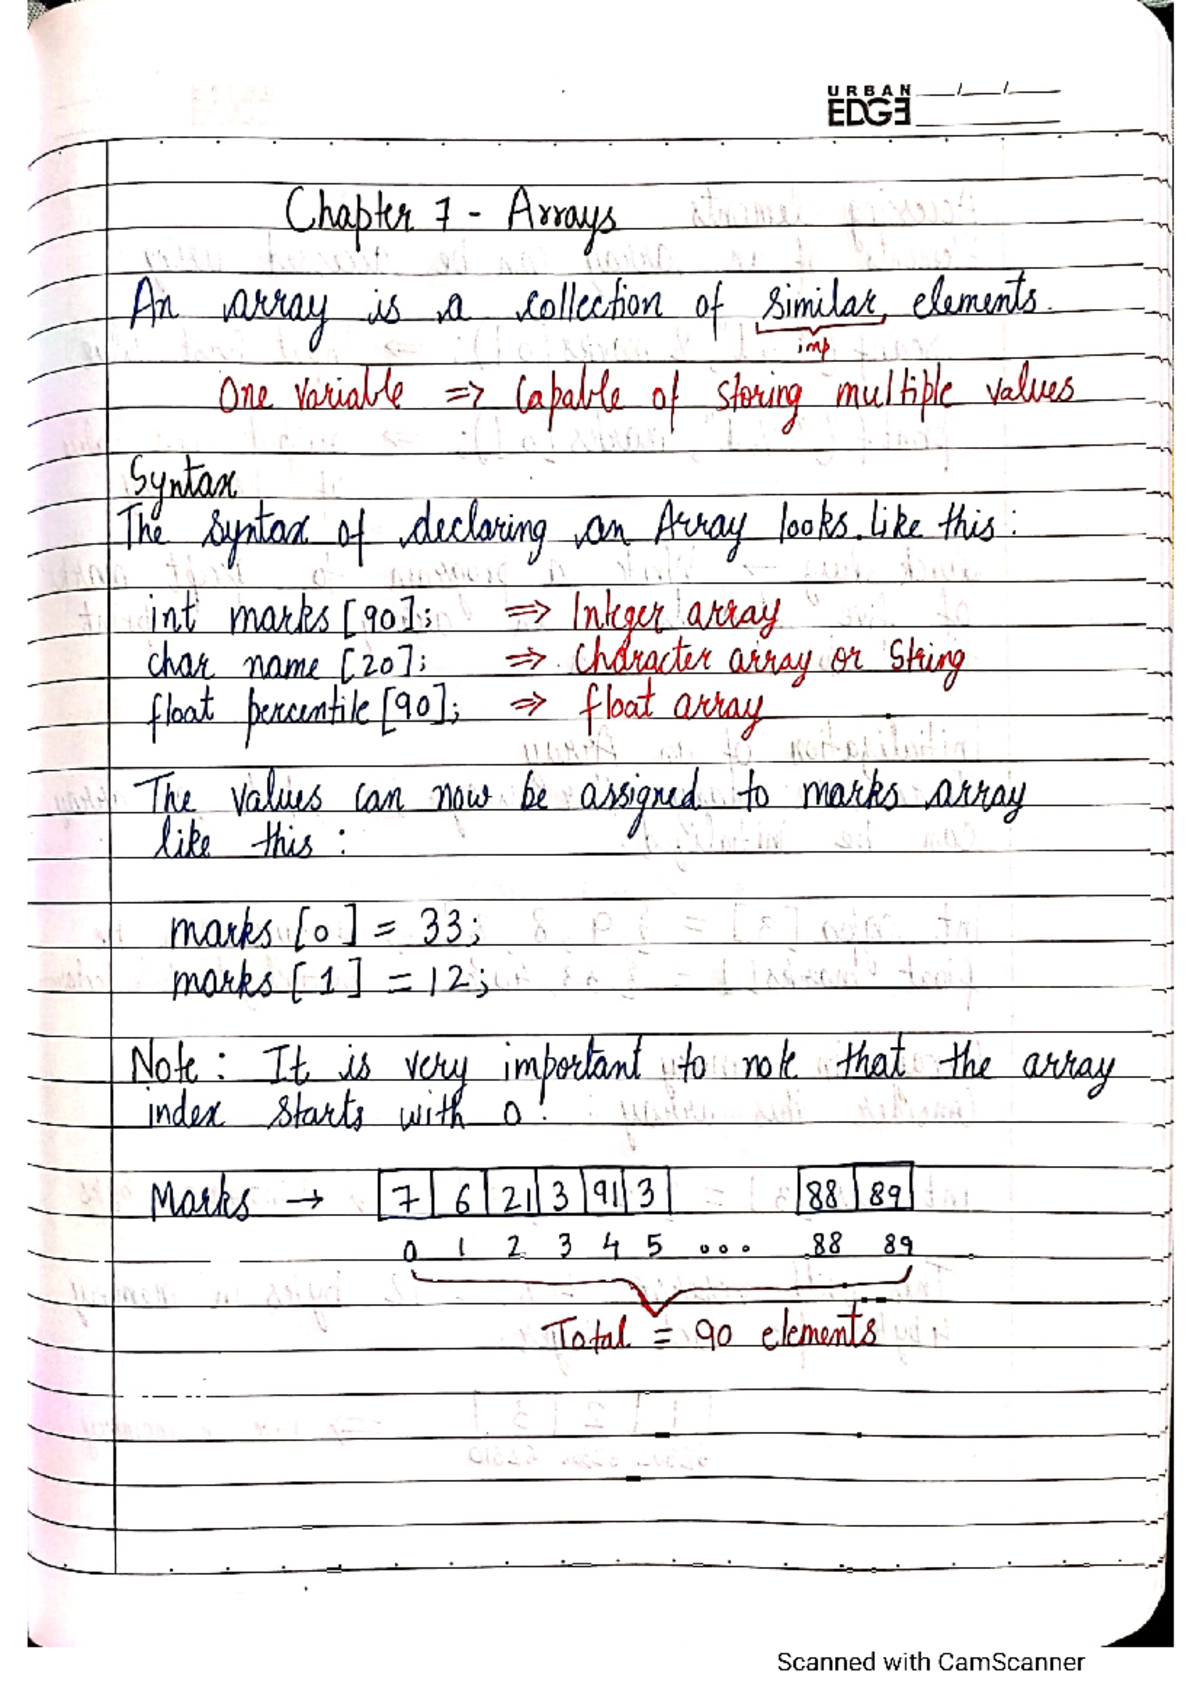 URBAN
EDGE
Chapter 7 - Arrays
An array is a collection of similar elements.
imp
One variable => Capable of storing multiple values
Syntax
The syntax of declaring an Array looks like this:
int marks [90]; => Integer array
char name [20]; => Character array or String
float percentile [90]; => float array
The values can now be assigned to marks array
like this:
marks [0] = 33;
marks [1] = 12;
Note: It is very important to note that the array
index starts with 0!
Marks → 7 6 21 3 91 3 88 89
0 1 2 3 4 5 ... 88 89
Total = 90 elements
Scanned with CamScanner